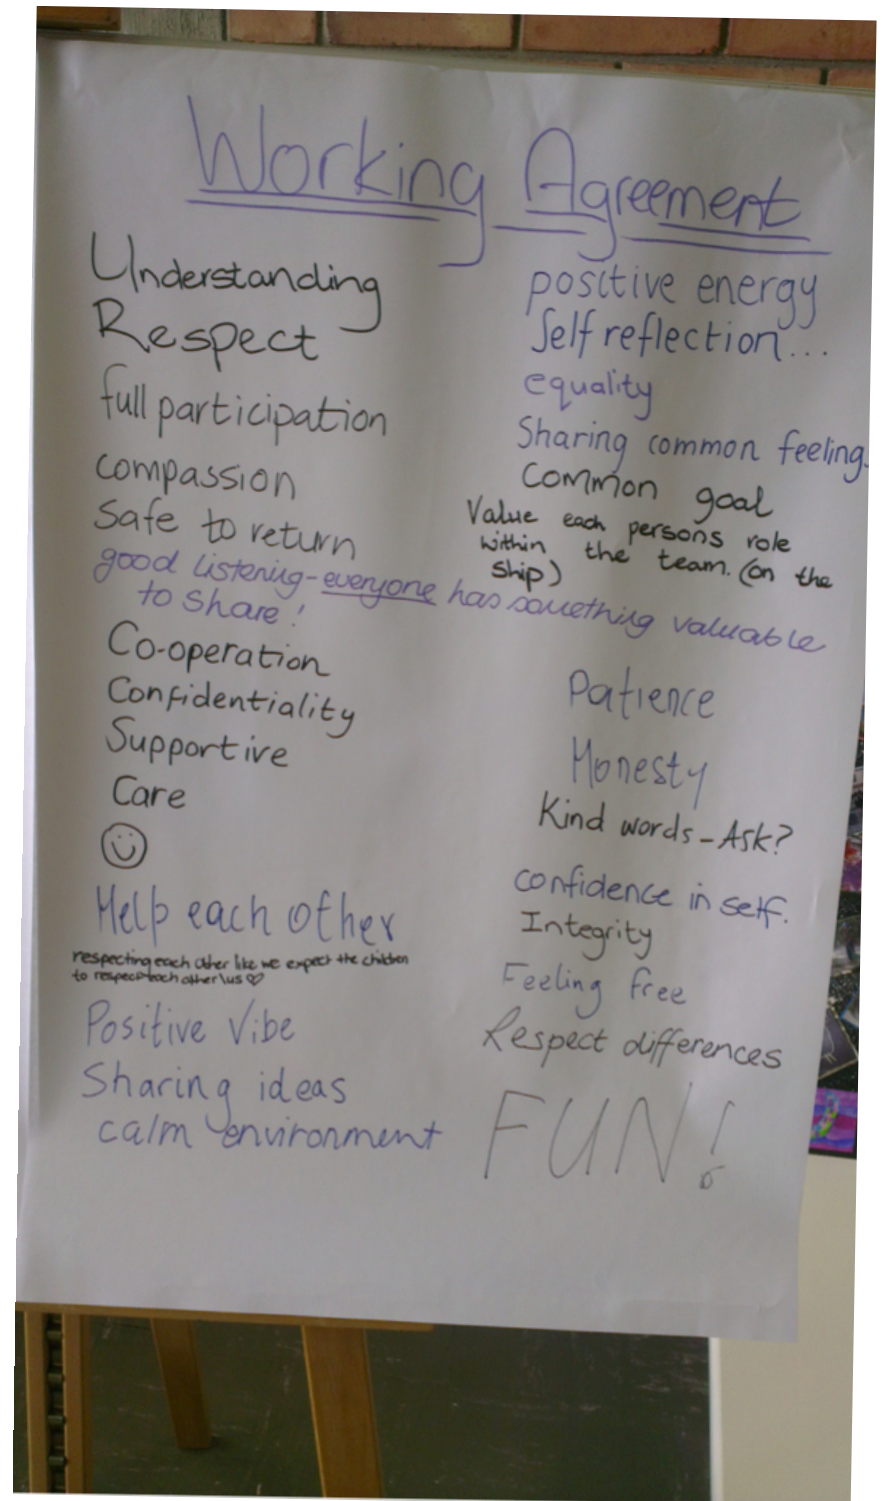 Working Agreement
Understanding
Respect
full participation
compassion
Safe to return
good listening - everyone has something valuable
to share!
Co-operation
Confidentiality
Supportive
Care
Help each other
respecting each other like we expect the children
to respect each other\us ♡
Positive Vibe
Sharing ideas
calm environment
positive energy
Self reflection...
equality
Sharing common feeling.
Common goal
Value each persons role
within the team. (on the
ship)
Patience
Honesty
Kind words - Ask?
confidence in self.
Integrity
Feeling free
Respect differences
FUN!